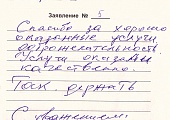 Заявление № 5
Спасибо за хорошо
оказанные услуги
доброжелательность.
Услуги оказаны
качественно.
Так держать
С уважением: